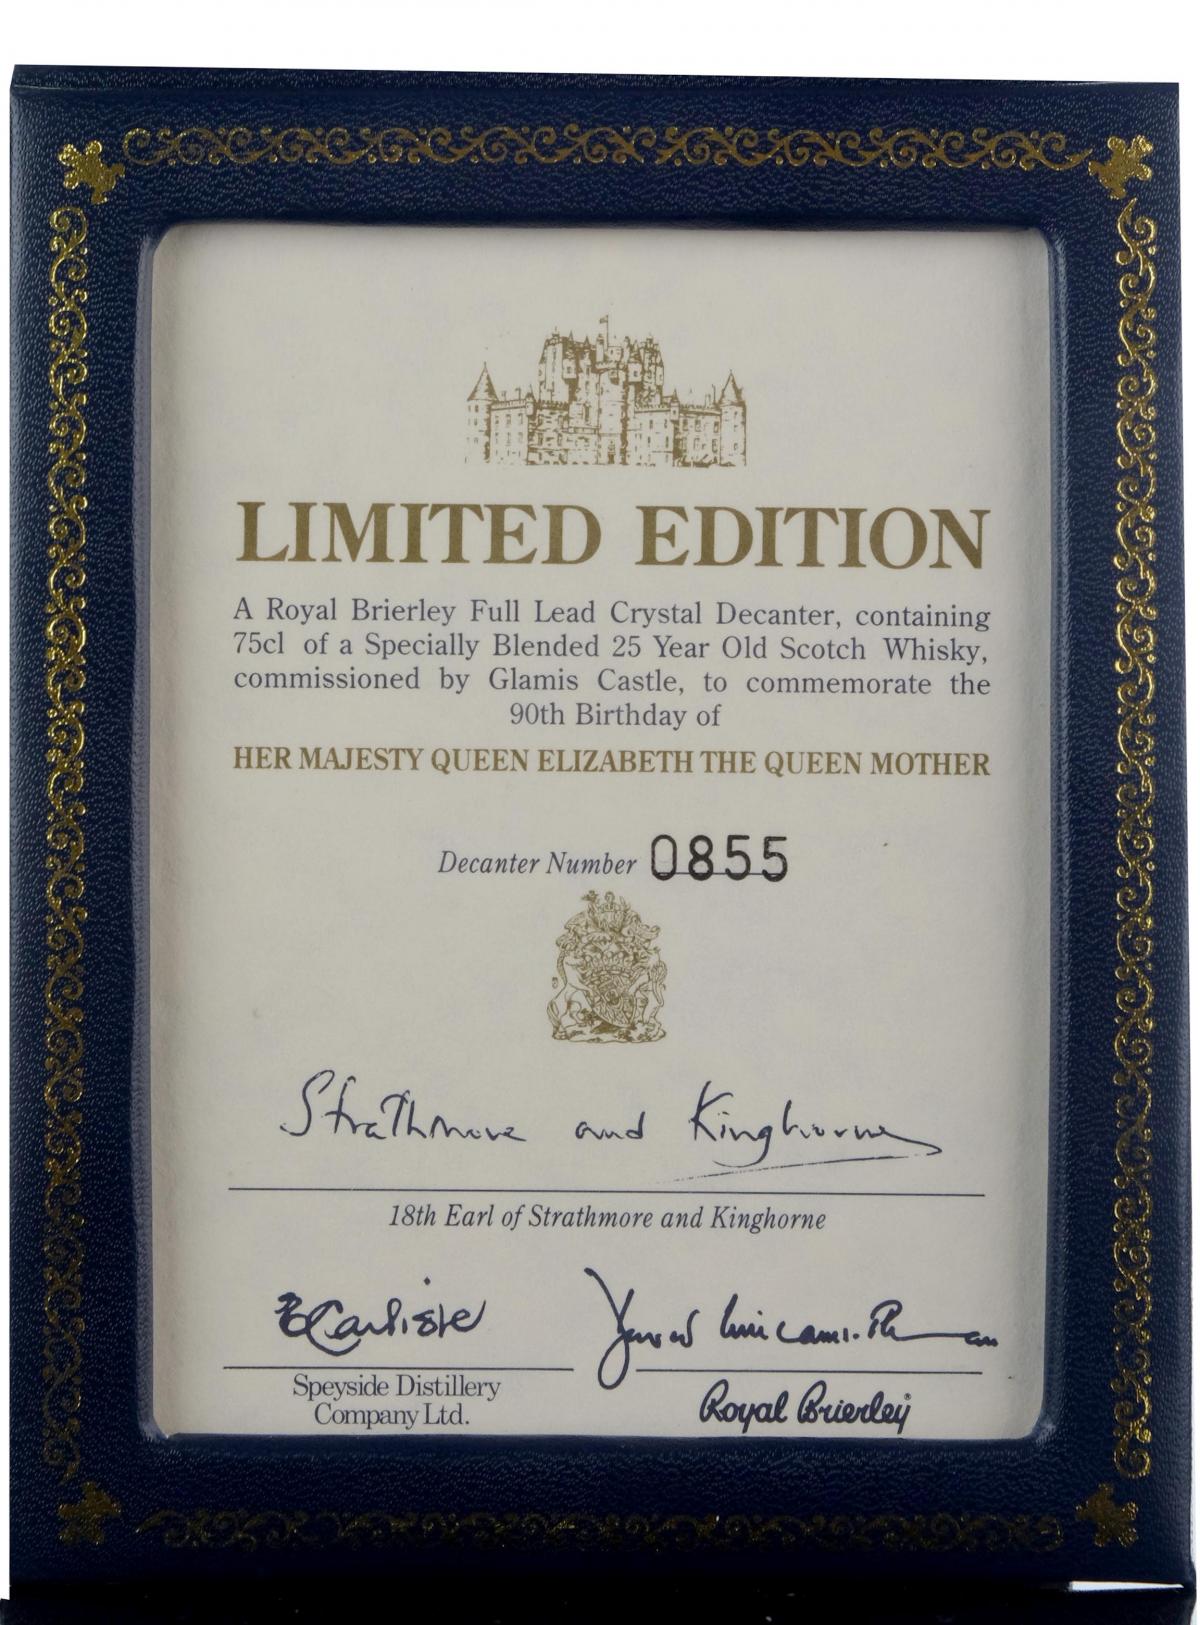 LIMITED EDITION
A Royal Brierley Full Lead Crystal Decanter, containing
75cl of a Specially Blended 25 Year Old Scotch Whisky,
commissioned by Glamis Castle, to commemorate the
90th Birthday of
HER MAJESTY QUEEN ELIZABETH THE QUEEN MOTHER
Decanter Number 0855
Strathmore and Kinghorne
18th Earl of Strathmore and Kinghorne
Carlisle
Speyside Distillery
Company Ltd.
Royal Brierley